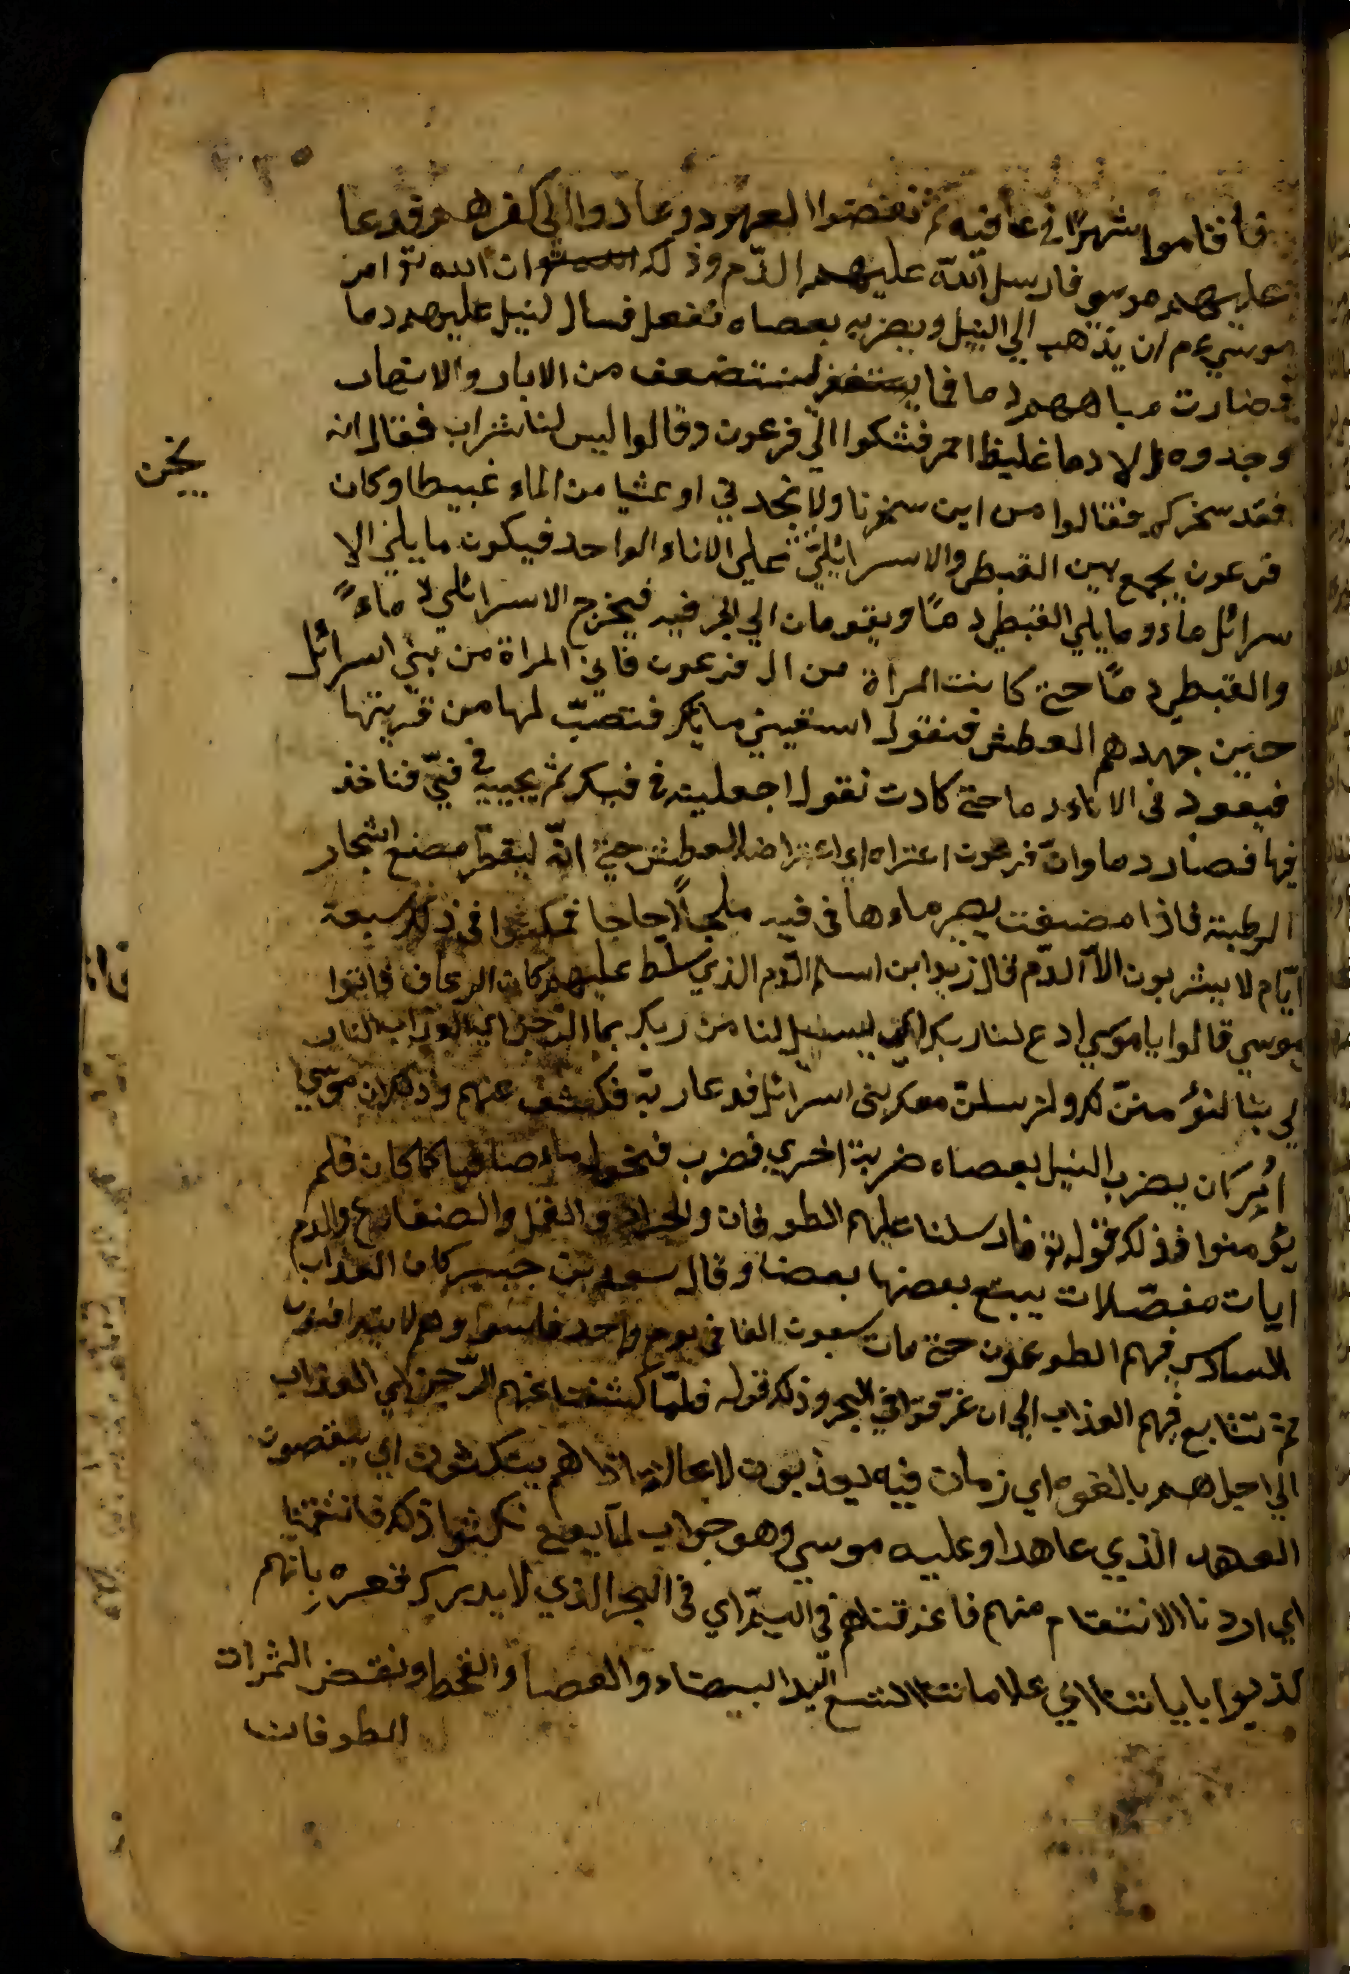 فاقاموا شهرًا في عافيه ثم نقضوا العهود وعادوا الي كفرهم وقد عا
عليهم موسي فارسل الله عليهم الدّم وذلك ان الله تو امر
موسي عم ان يذهب الي النيل ويضربه بعصاه ففعل فسال لنيل عليهم دما
فصارت مياههم دما فما من الابار والانهار
وجدوه الا دما غليظا احمر فشكوا الي فرعون وقالوا ليس لنا شراب فقال انه
فقد سخركم فقالوا من اين سخرنا ولا نجد في اوعشيا من الماء غبيطا وكان
نحن
فرعون يجمع بين القبطي والاسرائيليّ علي الاناء الواحد فيكون ما يلي الا
سرائل ماء وما يلي القبطي دمًا ويقومان الي الجر فيه فيخرج الاسرائلي ماءً
والقبطي دمًا حتي كانت المرأة من ال فرعون فاتي المراة من بني اسرائل
حين جهدهم العطش فتقول اسقيني مايكم فتصبّ لها من قربتها
فيعود في الاناء دما حتي كادت تقول اجعليه في فيك ثم يجيبيه في فيّ فتاخذ
فيها فصار دما وانّ فرعون اعتراه اي العطش حتي انّه ليقطّ مصنع اشجار
الرطبة فاذا مضغت يصير ماءها في فيه ملحًا اجاجا فمكثوا في ذلك سبعة
ايّام لا يشربون الاّ الدّم قال زيد ابن اسلم الدّم الذي سلّط عليهم كان الرعاف فاتوا
موسي قالوا يا موسي ادع لنا ربك لنا من ربكم
لي بنا لنؤمننّ لك ولنرسلنّ معك بني اسرائل فدعا ربّه فكشف عنهم وذلك ان موسي
امر كان يضرب النيل بعصاه ضربة اخري فضرب فتحول ماء صافيا كما كان فلم
يؤمنوا فذلك قوله تو فارسلنا عليهم الطوفان والجراد والقمل والضفادع والدم
ايات مفصّلات يتبع بعضها بعضا وقال سعيد بن جبير كان العذاب
السادس فهم الطوعون حتي مات سبعون الفا في يوم واحد فامسوا وهم لا يتدافنون
ثم تتابع فهم العذاب الي ان غرّقوا في البحر وذلك قوله فلمّا كشفنا عنهم الرّجز اي العذاب
الي اجل هم بالغوه اي زمان فيه يعذبون لا محالة اذا هم ينكثون اي ينقضون
العهد الذي عاهدوا عليه موسي وهو جواب لمّا يعني نكثوا ذلك فانتقمنا
اي اردنا الانتقام منهم فاغرقناهم في اليمّ اي في البحر الذي لا يدرك قعره بانهم
كذبوا باياتنا اي علاماتنا التسع اليد البيضاء والعصا والقحط ونقص الثمرات
الطوفان